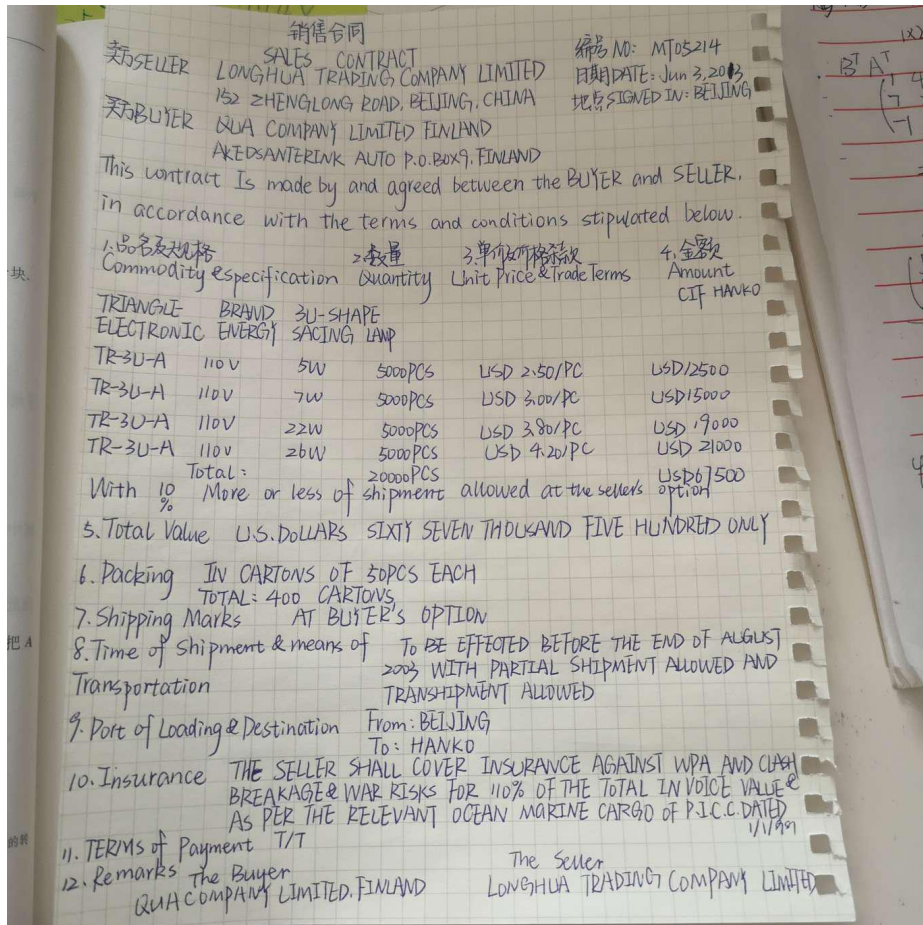 销售合同
SALES CONTRACT
编号 NO: MT05214
卖方SELLER LONGHUA TRADING COMPANY LIMITED
日期DATE: Jun 3, 2013
152 ZHENGLONG ROAD, BEIJING, CHINA
地点SIGNED IN: BEIJING
买方BUYER QUA COMPANY LIMITED FINLAND
AKEDSANTERINK AUTO P.O.BOX9, FINLAND
This contract Is made by and agreed between the BUYER and SELLER,
in accordance with the terms and conditions stipulated below.
1.品名及规格 2.数量 3.单价及价格条款 4.金额
Commodity & specification Quantity Unit Price & Trade Terms Amount
CIF HANKO
TRIANGLE BRAND 3U-SHAPE
ELECTRONIC ENERGY SACING LANP
TR-3U-A 110V 5W 5000PCS USD 2.50/PC USD12500
TR-3U-A 110V 7W 5000PCS USD 3.00/PC USD15000
TR-3U-A 110V 22W 5000PCS USD 3.80/PC USD 19000
TR-3U-A 110V 26W 5000PCS USD 4.20/PC USD 21000
Total: 20000PCS USD67500
With 10% More or less of shipment allowed at the sellers option
5. Total Value U.S. DOLLARS SIXTY SEVEN THOUSAND FIVE HUNDRED ONLY
6. Packing IN CARTONS OF 50PCS EACH
TOTAL: 400 CARTONS
7. Shipping Marks AT BUYER'S OPTION
8. Time of Shipment & means of TO BE EFFECTED BEFORE THE END OF AUGUST
2003 WITH PARTIAL SHIPMENT ALLOWED AND
Transportation TRANSHIPMENT ALLOWED
9. Port of Loading & Destination From: BEIJING
To: HANKO
10. Insurance THE SELLER SHALL COVER INSURANCE AGAINST WPA AND CLASH
BREAKAGE & WAR RISKS FOR 110% OF THE TOTAL INVOICE VALUE &
AS PER THE RELEVANT OCEAN MARINE CARGO OF P.I.C.C. DATED
1/1/1991
11. TERMS of Payment T/T
12. Remarks The Buyer The Seller
QUA COMPANY LIMITED. FINLAND LONGHUA TRADING COMPANY LIMITED
块.
把 A
的转